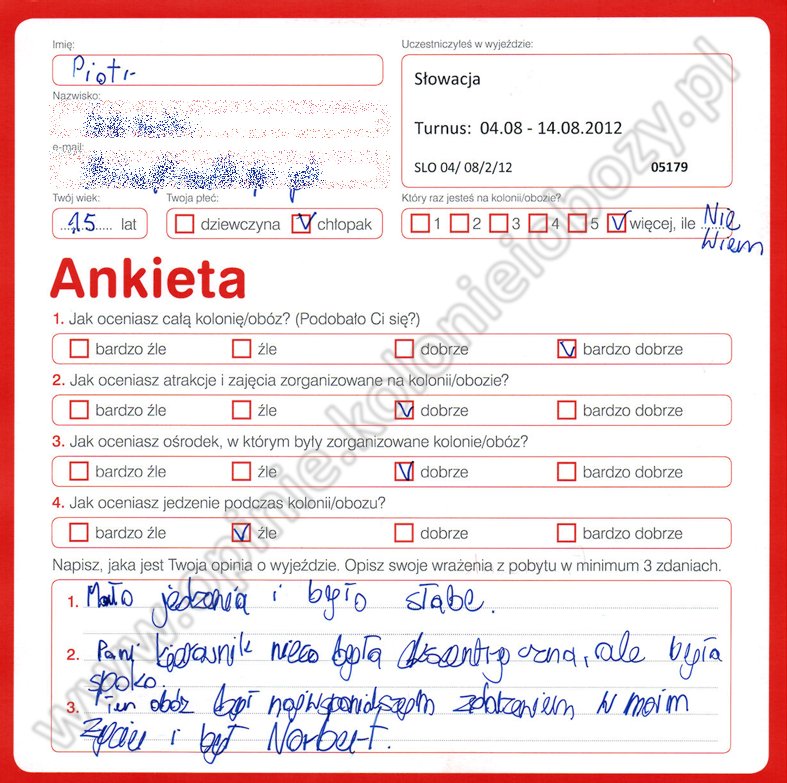 Imię:
Piotr
Uczestniczyłeś w wyjeździe:
Słowacja
Turnus: 04.08 - 14.08.2012
SLO 04/ 08/2/12 05179
Nazwisko:
e-mail:
Twój wiek:
15 lat
Twoja płeć:
dziewczyna chłopak
Który raz jesteś na kolonii/obozie?
1 2 3 4 5 więcej, ile Nie
wiem
Ankieta
1. Jak oceniasz całą kolonię/obóz? (Podobało Ci się?)
bardzo źle źle dobrze bardzo dobrze
2. Jak oceniasz atrakcje i zajęcia zorganizowane na kolonii/obozie?
bardzo źle źle dobrze bardzo dobrze
3. Jak oceniasz ośrodek, w którym były zorganizowane kolonie/obóz?
bardzo źle źle dobrze bardzo dobrze
4. Jak oceniasz jedzenie podczas kolonii/obozu?
bardzo źle źle dobrze bardzo dobrze
Napisz, jaka jest Twoja opinia o wyjeździe. Opisz swoje wrażenia z pobytu w minimum 3 zdaniach.
1. Mało jedzenia i było słabe.
2. Pani kierownik nieco była ekscentryczna, ale była
spoko.
3. Ten obóz był najwspanialszym zdarzeniem w moim
życiu i był Norbert.
www.opinie.kolonieiobozy.pl